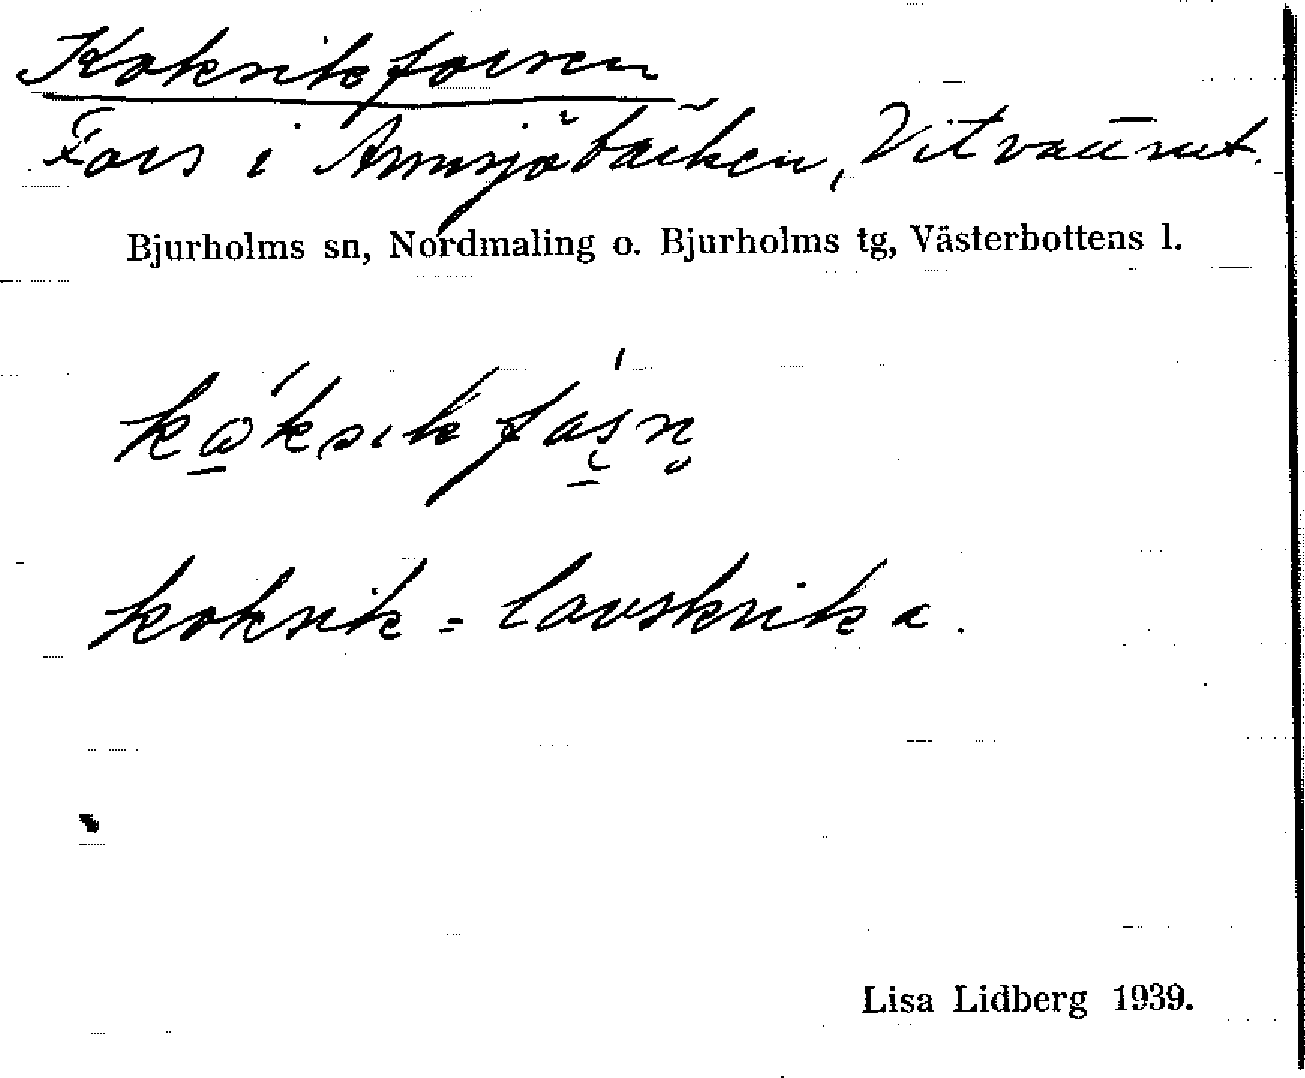 Koksikforsen
Fors i Armsjöbäcken, Vitvattnet.
Bjurholms sn, Nordmaling o. Bjurholms tg, Västerbottens l.
koksik = lavskrika.
Lisa Lidberg 1939.